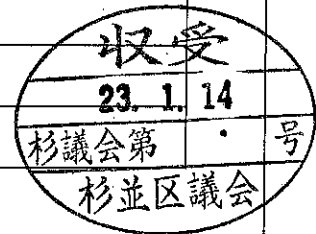 収受
23. 1. 14
杉議会第 ・ 号
杉並区議会